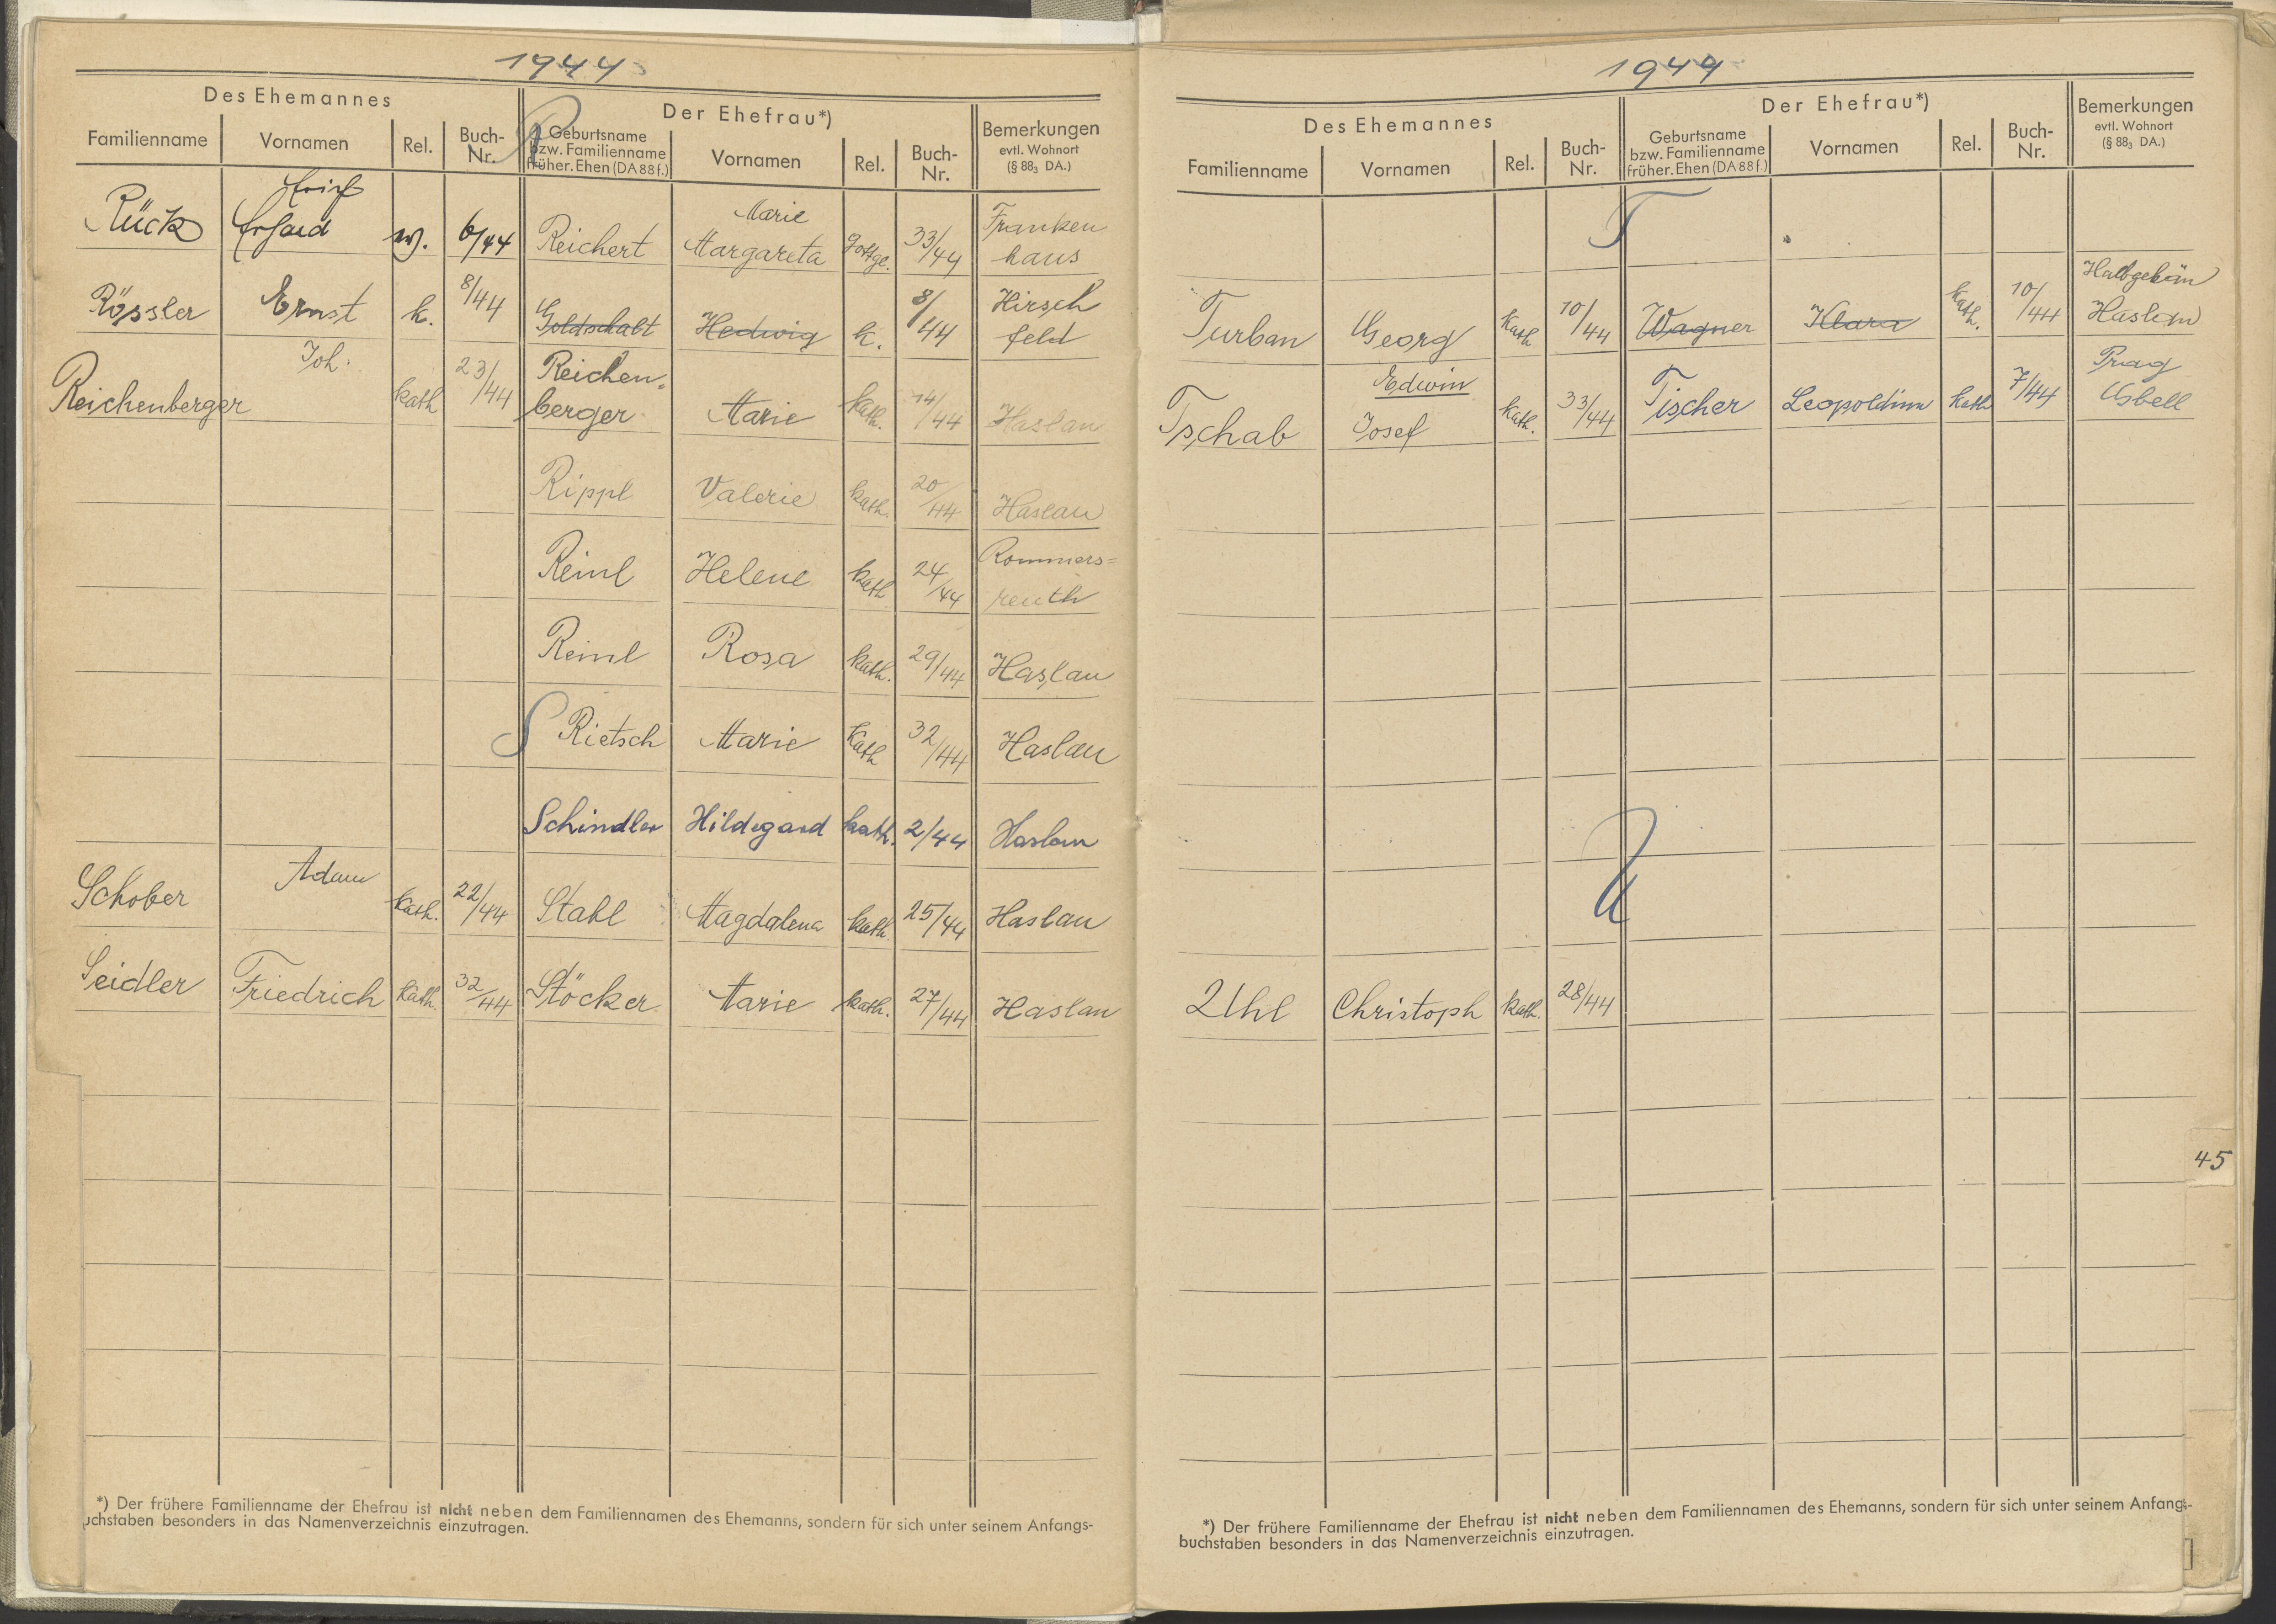 1944
Des Ehemannes
Der Ehefrau*)
Familienname Vornamen Rel. Buch-Nr. Geburtsname bzw. Familienname früher. Ehen (DA 88 f.) Vornamen Rel. Buch-Nr. Bemerkungen evtl. Wohnort (§ 88₃ DA.)
R
Rück Erich Erhard 6/44 Reichert Marie Margareta gottgl. 33/44 Frankenhaus
Rössler Ernst k. 8/44 Goldschalt Hedwig k. 8/44 Hirschfeld
Reichenberger Joh. kath 23/44 Reichen=berger Marie kath. 14/44 Haslau
Rippl Valerie kath. 20/44 Haslau
Reinl Helene kath 24/44 Rommers=reuth
Reinl Rosa kath. 29/44 Haslau
S
Rietsch Marie kath 32/44 Haslau
Schindler Hildegard kath. 2/44 Haslau
Schober Adam kath. 22/44 Stahl Magdalena kath. 25/44 Haslau
Seidler Friedrich kath. 32/44 Stöcker Marie kath. 27/44 Haslau
*) Der frühere Familienname der Ehefrau ist nicht neben dem Familiennamen des Ehemanns, sondern für sich unter seinem Anfangs-
uchstaben besonders in das Namenverzeichnis einzutragen.
1944
Des Ehemannes
Der Ehefrau*)
Familienname Vornamen Rel. Buch-Nr. Geburtsname bzw. Familienname früher. Ehen (DA 88 f.) Vornamen Rel. Buch-Nr. Bemerkungen evtl. Wohnort (§ 88₃ DA.)
T
Turban Georg kath 10/44 Wagner Klara kath. 10/44 Haslau
Tschab Edwin Josef kath. 33/44 Tischer Leopoldine kath 7/44 Prag
U
Uhl Christoph kath. 28/44
45
*) Der frühere Familienname der Ehefrau ist nicht neben dem Familiennamen des Ehemanns, sondern für sich unter seinem Anfangs-
buchstaben besonders in das Namenverzeichnis einzutragen.